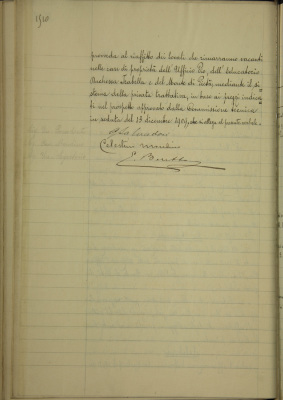 1910
proceda al riaffitto dei locali che rimarranno vacanti
nelle case di proprietà dell'Ufficio Pio, dell'Educatorio
Duchessa Isabella e del Monte di Pietà, mediante il si-
stema della privata trattativa, in base ai prezzi indica-
ti nel prospetto approvato dalla Commissione tecnica
in seduta del 13 dicembre 1909, che si allega al presente verbale.
Celestino